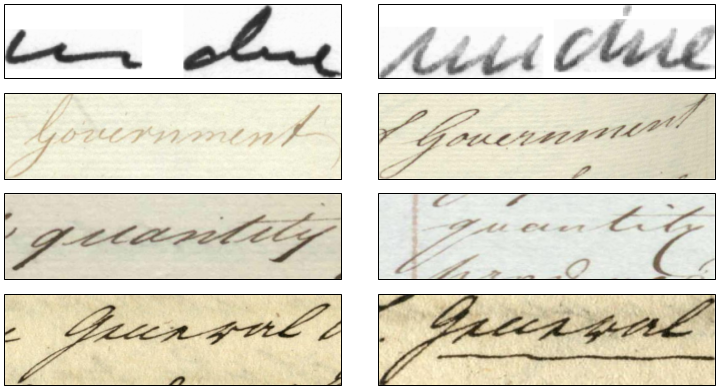 in due in due
Government Government
quantity quantity
General General